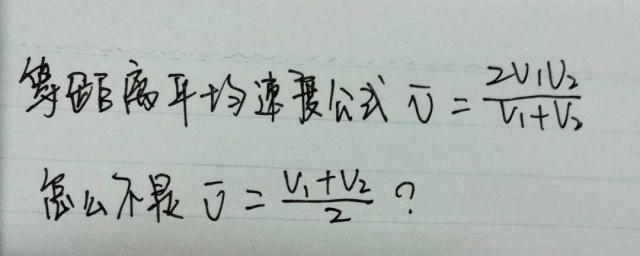 等距离平均速度公式 v̄ = 2v₁v₂/(v₁+v₂)
怎么不是 v̄ = (v₁+v₂)/2 ?